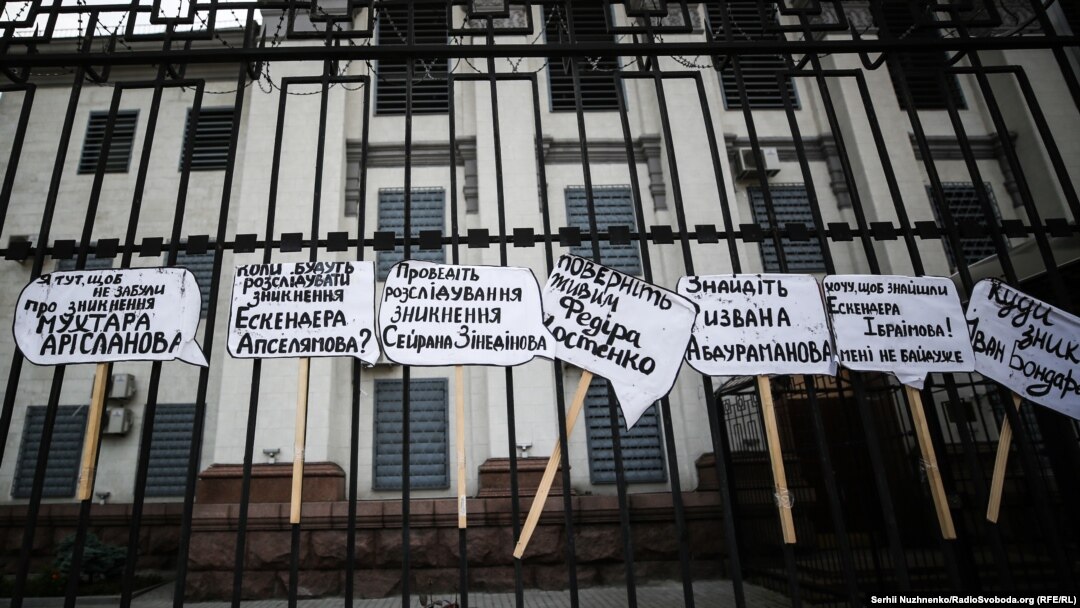 Я ТУТ, ЩОБ
НЕ ЗАБУЛИ
ПРО ЗНИКНЕННЯ
МУХТАРА
АРІСЛАНОВА
КОЛИ БУДУТЬ
РОЗСЛІДУВАТИ
ЗНИКНЕННЯ
ЕСКЕНДЕРА
АПСЕЛЯМОВА?
ПРОВЕДІТЬ
РОЗСЛІДУВАННЯ
ЗНИКНЕННЯ
СЕЙРАНА ЗІНЕДІНОВА
ПОВЕРНІТЬ
ЖИВИМ
ФЕДІРА
КОСТЕНКО
ЗНАЙДІТЬ
ІЗВАНА
АБДУРАМАНОВА
ХОЧУ, ЩОБ ЗНАЙШЛИ
ЕСКЕНДЕРА
ІБРАІМОВА!
МЕНІ НЕ БАЙДУЖЕ
КУДИ
ЗНИК
ІВАН БОНДАР
Serhii Nuzhnenko/RadioSvoboda.org (RFE/RL)